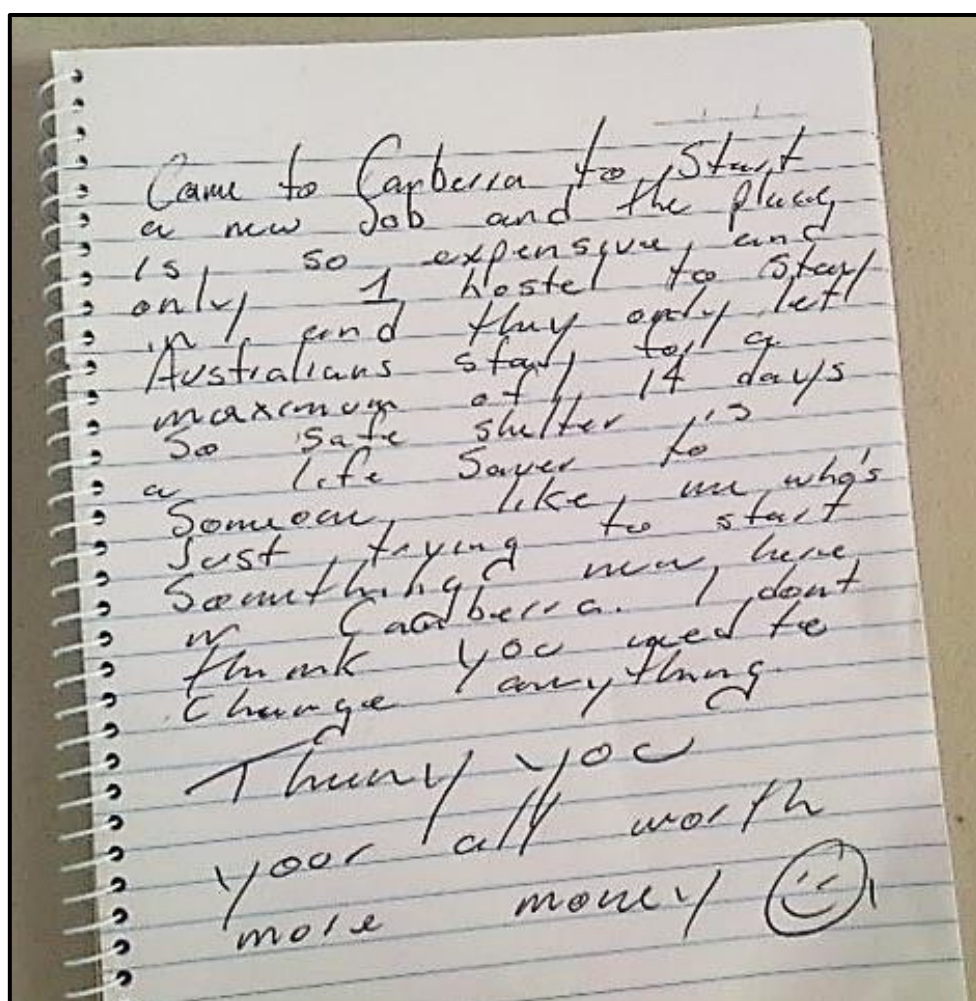 Came to Canberra to Start
a new Job and the place
is so expensive and
only 1 hostel to stay
in and they only let
Australians stay to a
maximum of 14 days
So safe shelter is
a life Saver to
Someone like me who's
Just trying to start
Something new here
in Canberra. I dont
think you need to
change anything
Thank you
your all worth
more money